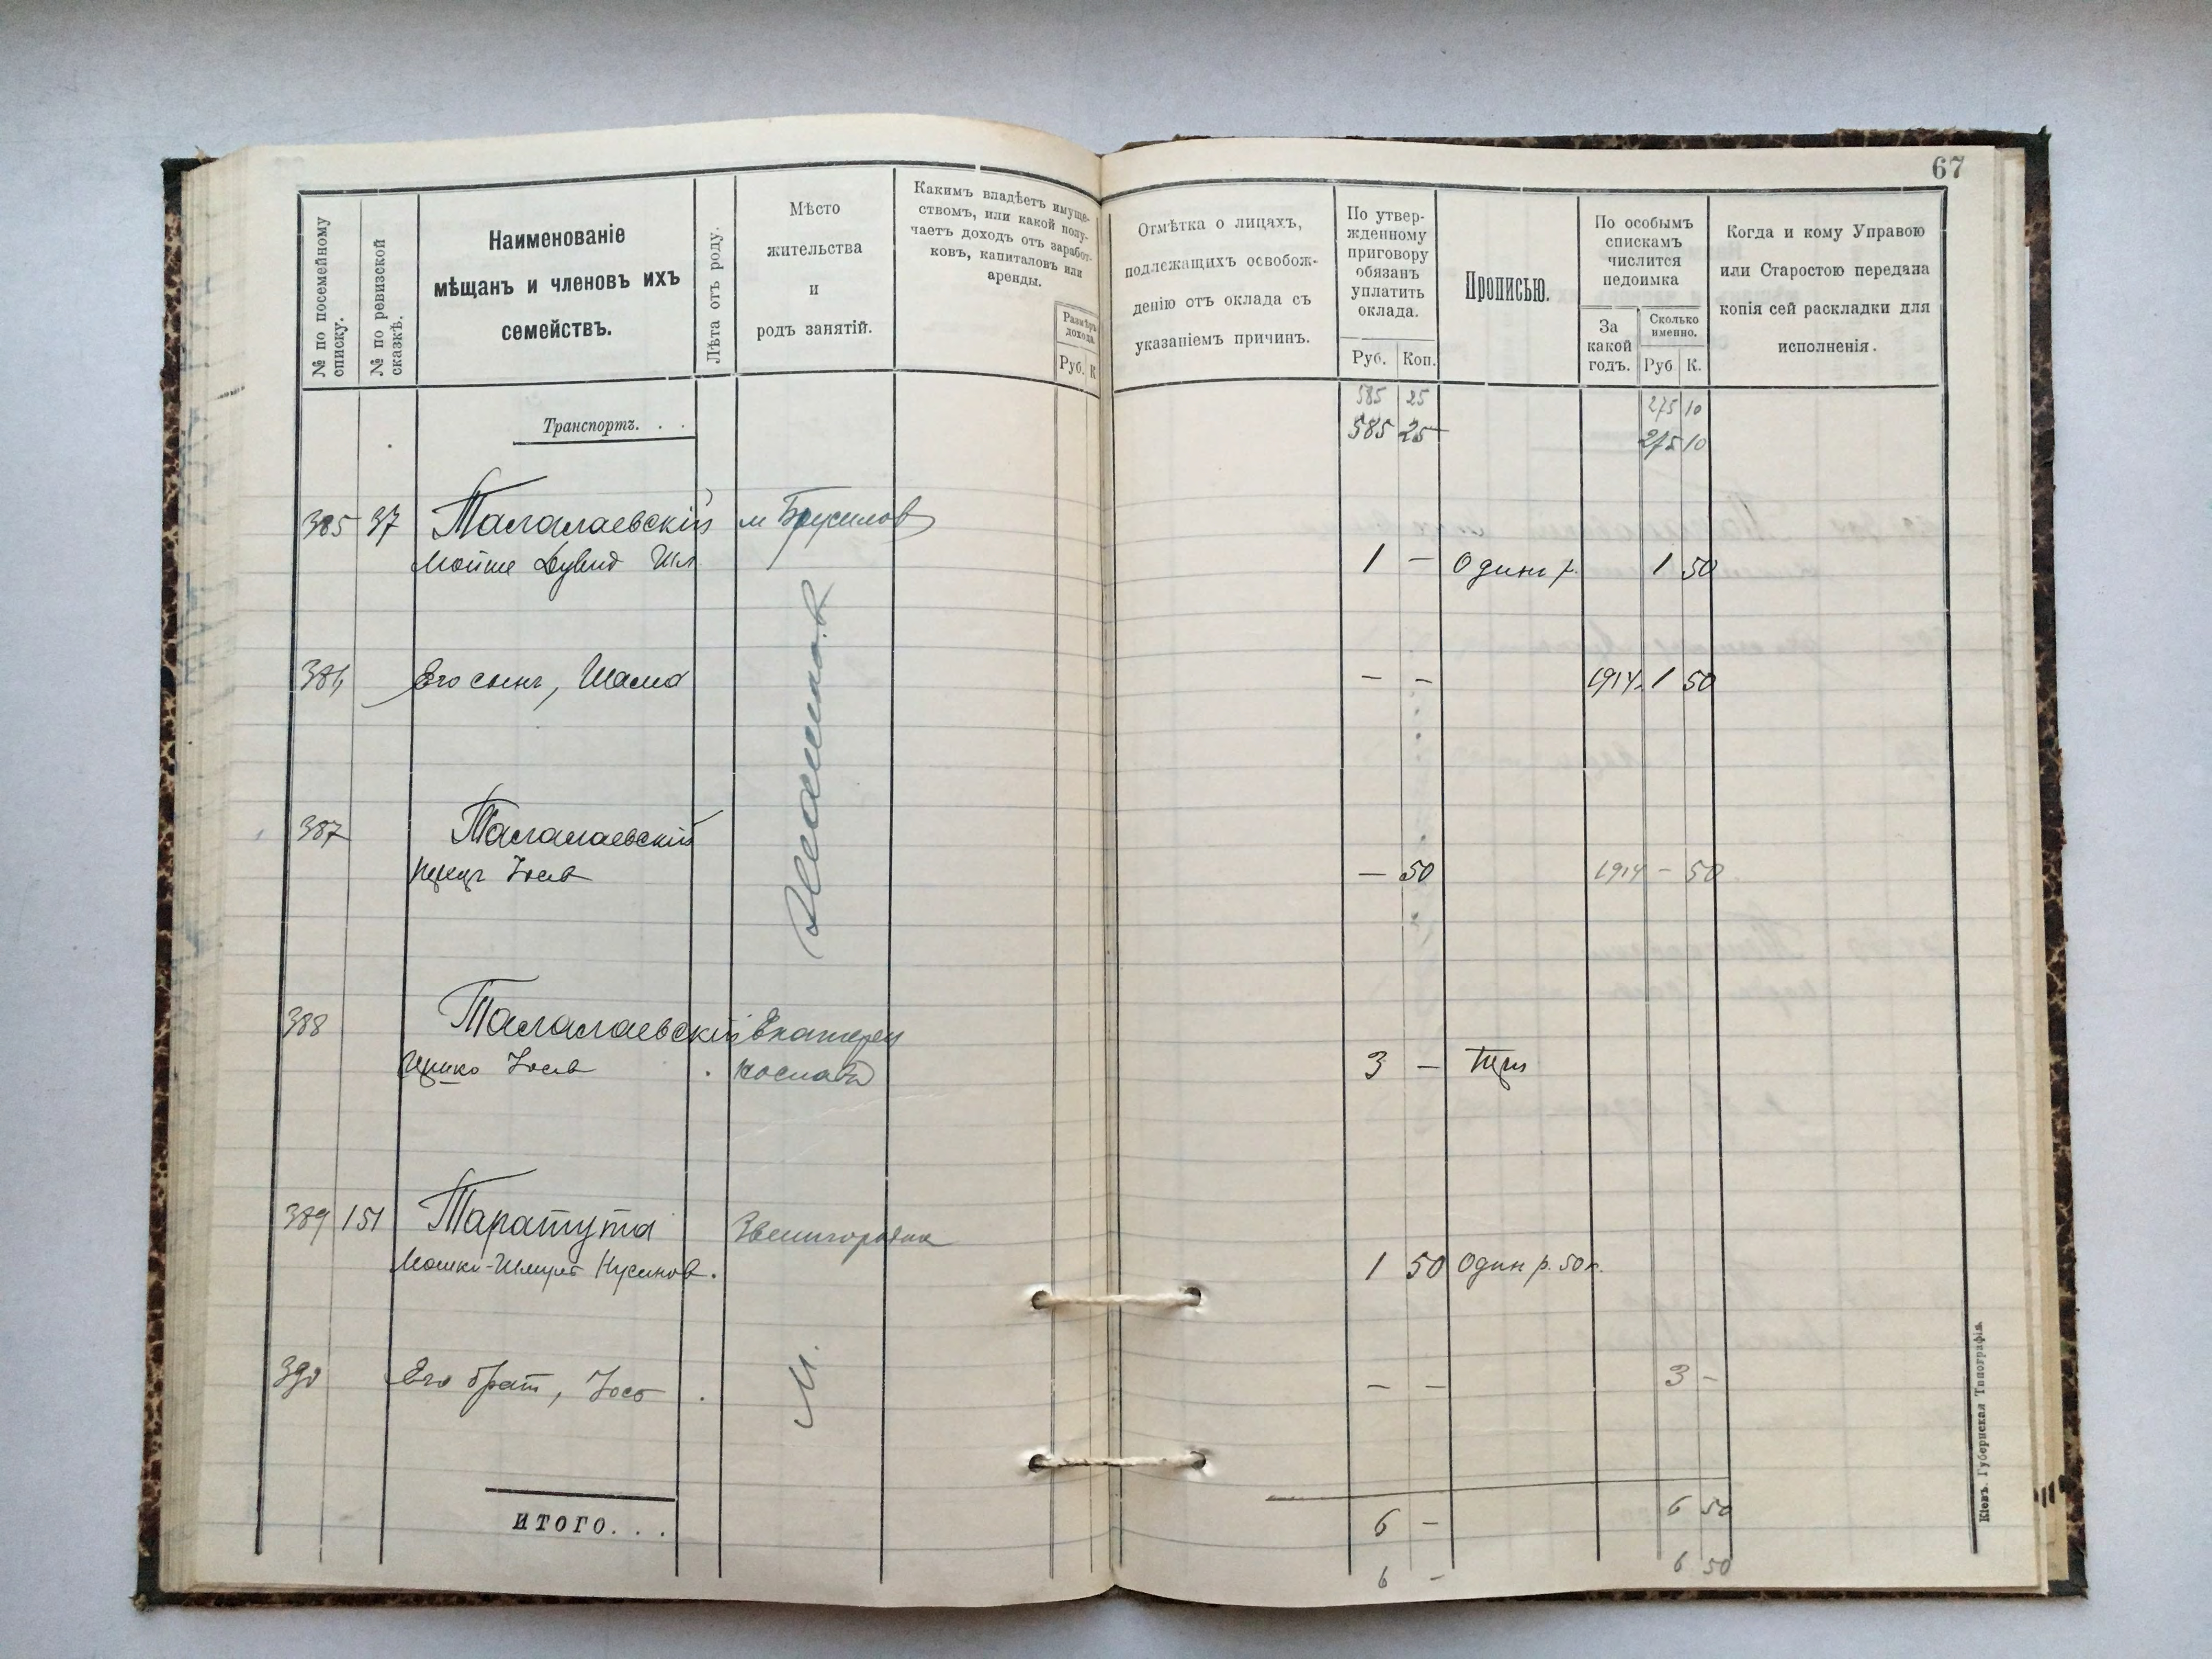 67
№ по посемейному списку.
№ по ревизской сказкѣ.
Наименованіе
мѣщанъ и членовъ ихъ
семействъ.
Лѣта отъ роду.
Мѣсто
жительства
и
родъ занятій.
Какимъ владѣетъ имуще-
ствомъ, или какой полу-
чаетъ доходъ отъ заработ-
ковъ, капиталовъ или
аренды.
Размѣръ
дохода.
Руб. К
Отмѣтка о лицахъ,
подлежащихъ освобож-
денію отъ оклада съ
указаніемъ причинъ.
По утвер-
жденному
приговору
обязанъ
уплатить
оклада.
Руб. Коп.
Прописью.
По особымъ
спискамъ
числится
недоимка
За
какой
годъ.
Сколько
именно.
Руб К.
Когда и кому Управою
или Старостою передана
копія сей раскладки для
исполненія.
585 25 275 10
Транспортъ. . . 585 25 275 10
385 37 Талалаевскій м Брусилов
Мойше Дувид Шл 1 — Одинъ р. 1 50
386 Его сынъ, Шама — — 1914 1 50
387 Талалаевскій
Іосев — 50 1914 — 50
388 Талалаевскій Екатерин
Ицико Іосев . 3 — Три
389 151 Таратута Звенигородка
Мошко-Шмуль Нусинов. 1 50 Один р. 50 к.
390 Его брат, Іось . — — 3 —
ИТОГО. . . 6 — 6 50
6 — 6 50
Кіевъ. Губернская Типографія.